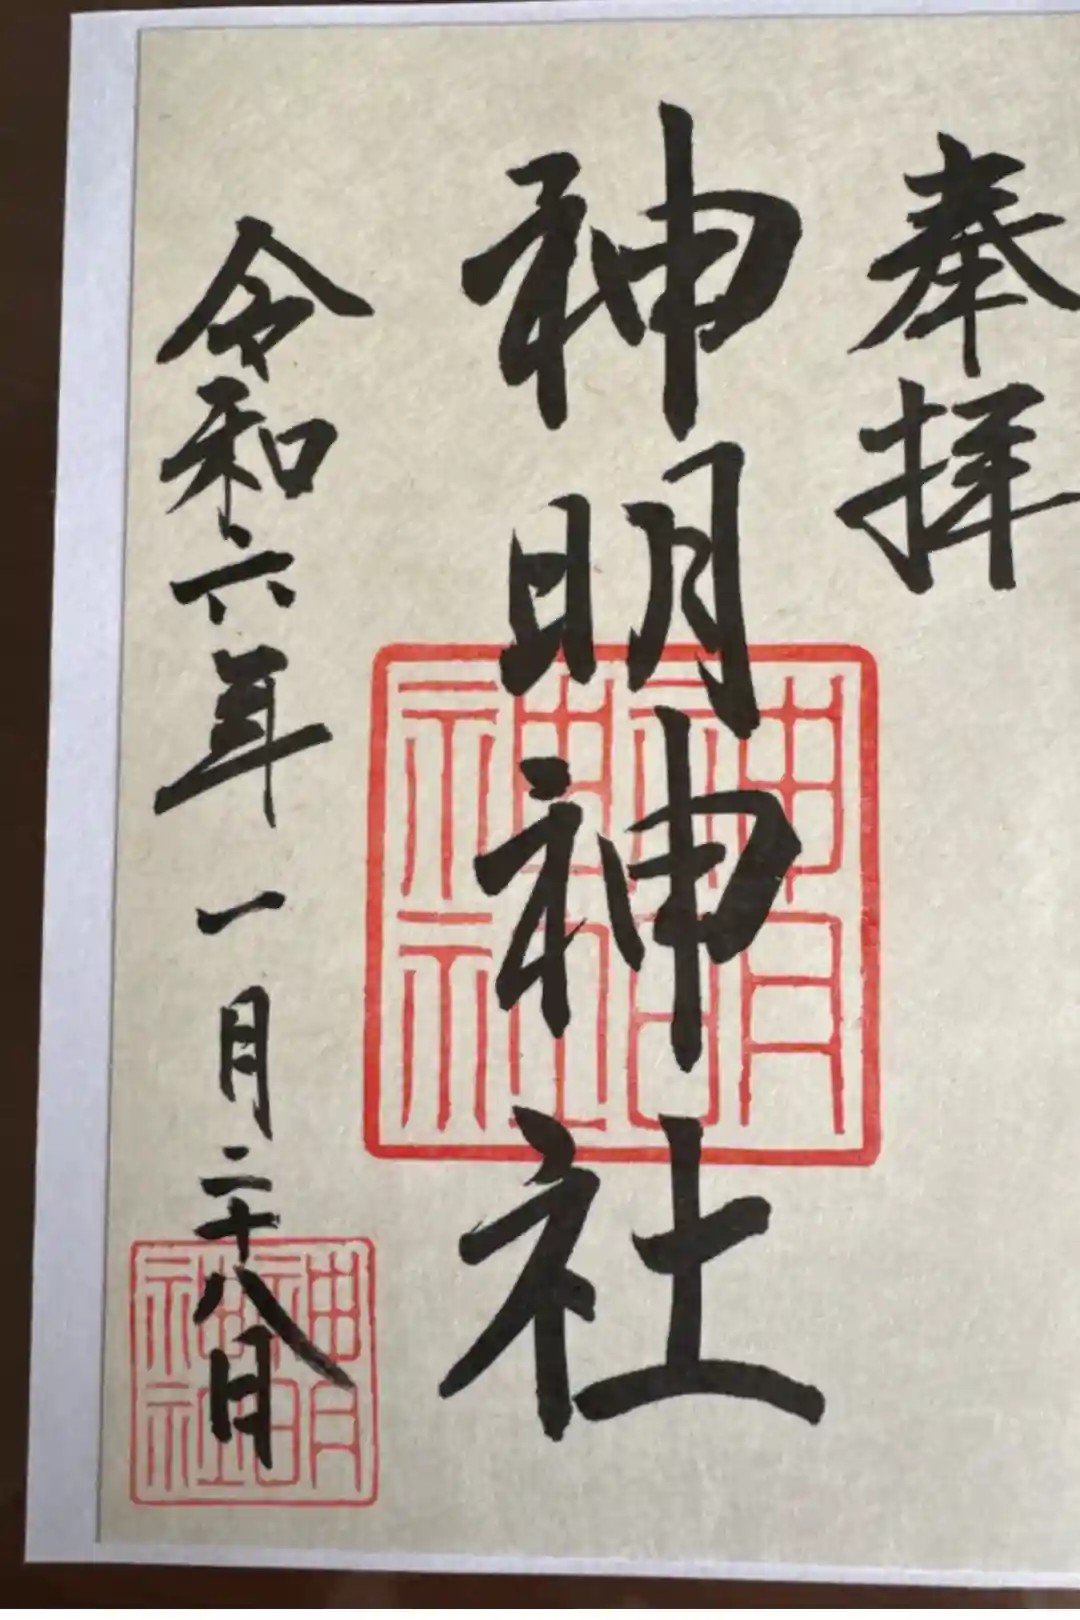 奉拝
神明神社
神明神社
令和六年一月二十八日
神明神社